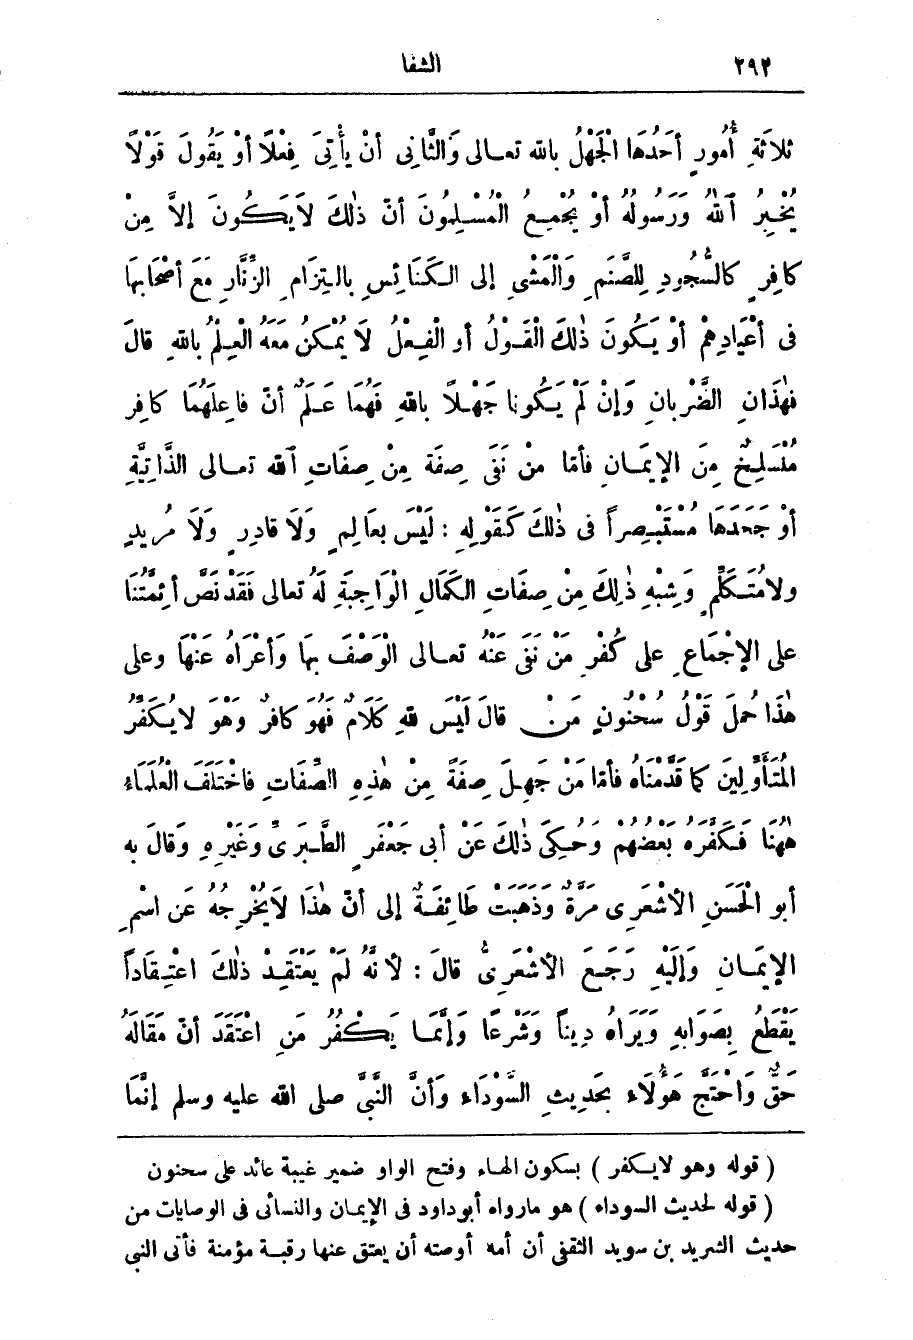 ٢٩٢ الشفا
ثلاثَةِ أُمُورٍ أحَدُهَا الْجَهْلُ بالله تعـالى وَالثَّانِى أنْ يأْتِىَ فِعْلًا أوْ يَقُولَ قَوْلًا
يُخْبِرُ ٱللهُ وَرَسُولُهُ أوْ يُجْمِعُ الْمُسْلِمُونَ أنّ ذٰلِكَ لاَيَكُونَ إلاَّ مِنْ
كافِرٍ كالسُّجُودِ لِلصَّنَمِ وَالْمَشْىِ إلى الكَنَائِسِ بالتِزَامِ الزُّنَّارِ مَعَ أصْحَابِهَا
فى أعْيَادِهِمْ أوْ يَكُونَ ذٰلِكَ الْقَوْلُ أو الْفِعْلُ لَا يُمْكِنُ مَعَهُ العِلْمُ بالله قالَ
فَهٰذَانِ الضَّرْبانِ وَإنْ لَمْ يَكُونا جَهْلًا باللهِ فَهُمَا عَلَمٌ أنّ فاعِلَهُمَا كافِر
مُنْسَلِخٌ مِنَ الإيمَـانِ فأمّا منْ نَفَى صِفَة مِنْ صِفَاتِ ٱلله تعـالى الذَّاتِيَّةِ
أوْ جَحَدَهَا مُسْتَبْصِراً فى ذٰلِكَ كَقَوْلِهِ : لَيْسَ بعَالِمٍ وَلَا قادِرٍ وَلَا مُرِيدٍ
ولامُتَكَلِّمٍ وَشِبْهِ ذٰلِكَ مِنْ صِفَاتِ الكَمَالِ الْوَاجِبَةِ لَهُ تعالى فَقَدْ نَصَّ أئِمَّتُنَا
على الإجْمَاعِ على كُفْرِ مَنْ نَفَى عَنْهُ تعـالى الْوَصْفَ بِهَا وَأعْرَاهُ عَنْهَا وعلى
هٰذَا حُمِلَ قَوْلُ سُحْنُونٍ مَنْ قالَ لَيْسَ للهِ كَلَامٌ فَهُوَ كافرٌ وَهْوَ لا يُكَفِّرُ
المُتَأَوِّلِينَ كما قَدَّمْنَاهُ فأمّا مَنْ جَهِلَ صِفَةً مِنْ هٰذِهِ الصِّفَاتِ فاخْتَلَفَ الْعُلَمَاءُ
هٰهُنَا فَكَفَّرَهُ بَعْضُهُمْ وَحُكِىَ ذٰلِكَ عَنْ أبى جَعْفَرٍ الطَّبَرِىِّ وَغَيْرِهِ وَقالَ به
أبو الْحَسَنِ الأشْعَرِى مَرَّةً وَذَهَبَتْ طَائِفَةٌ إلى أنّ هٰذَا لَايُخْرِجُهُ عَن اسْمِ
الإيمَـانِ وَإلَيْهِ رَجَعَ الأشْعَرِىُّ قالَ : لأنَّهُ لَمْ يَعْتَقِدْ ذٰلِكَ اعْتِقَاداً
يَقْطَعُ بِصَوَابِهِ وَيَرَاهُ دِيناً وَشَرْعًا وَإنَّمَـا يَكْفُرُ مَنِ اعْتَقَدَ أنّ مَقَالَهُ
حَقٌّ وَاحْتَجَّ هَؤُلَاءِ بحَدِيثِ السَّوْدَاءِ وَأنَّ النَّبِىَّ صلى الله عليه وسلم إنَّمَا
( قوله وهو لايكفر ) بسكون الهاء وفتح الواو ضمير غيبة عائد على سحنون
( قوله لحديث السوداء ) هو مارواه أبوداود فى الإيمان والنسائى فى الوصايات من
حديث الشريد بن سويد الثقفى أن أمه أوصته أن يعتق عنها رقبـة مؤمنة فأتى النبى